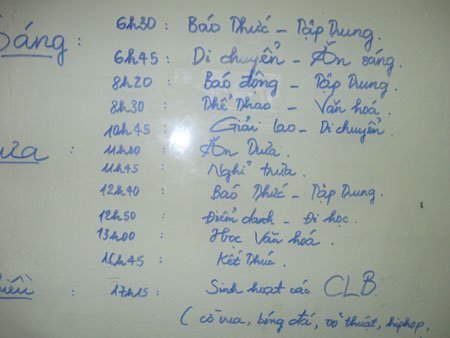 Sáng : 6h30 : Báo Thức - Tập Trung.
6h45 : Di chuyển - Ăn sáng.
8h20 : Báo động - Tập Trung.
8h30 : Thể Thao - Văn hoá
10h45 : Giải lao - Di chuyển
: 11h00 : Ăn Trưa.
11h45 : Nghỉ trưa.
12h40 : Báo Thức - Tập Trung.
12h50 : Điểm danh - Đi học.
13h00 : Học Văn hoá.
16h45 : Kết Thúc.
: 17h15 : Sinh hoạt các CLB.
( cờ vua, bóng đá, võ thuật, hiphop,